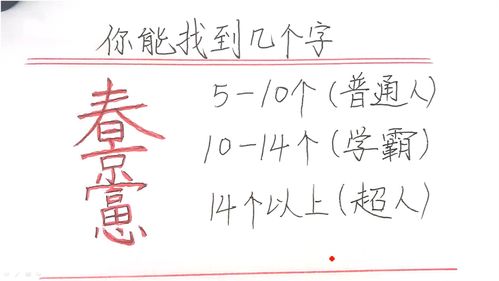 你能找到几个字
春
京
富
心
5-10个(普通人)
10-14个(学霸)
14个以上(超人)